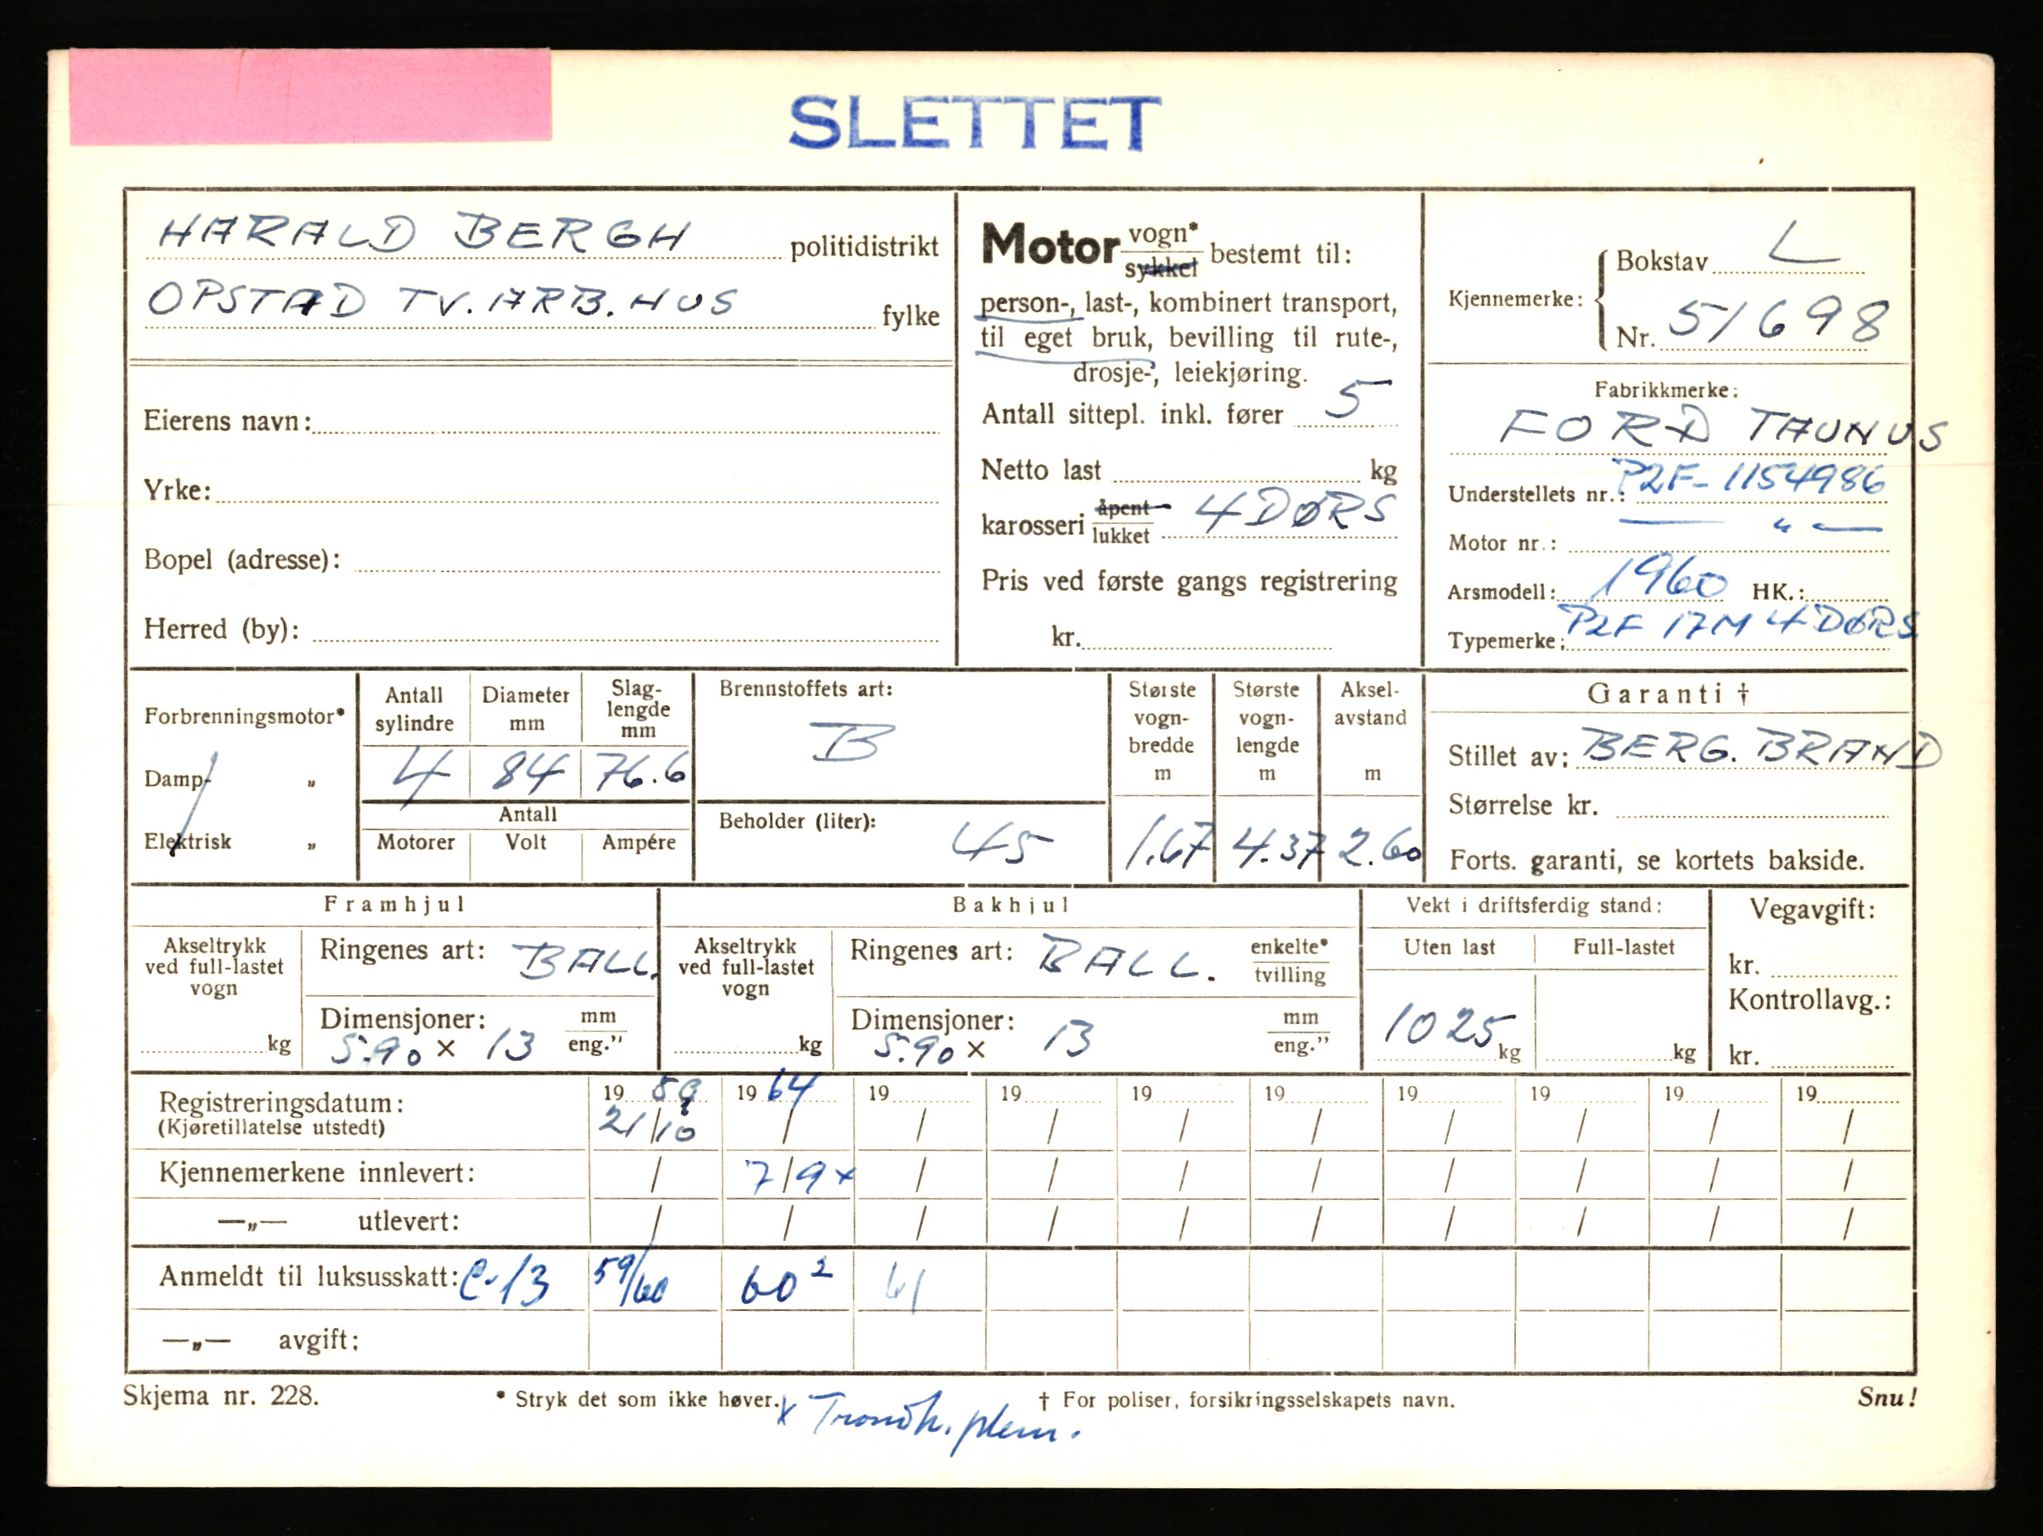 SLETTET
HARALD BERGH politidistrikt
OPSTAD TV. ARB. HUS fylke
Eierens navn:
Yrke:
Bopel (adresse):
Herred (by):
Motor vogn* sykkel bestemt til:
person-, last-, kombinert transport,
til eget bruk, bevilling til rute-,
drosje-, leiekjøring.
Antall sittepl. inkl. fører 5
Netto last kg
karosseri åpent lukket 4 DØRS
Pris ved første gangs registrering
kr.
Kjennemerke: Bokstav L
Nr. 51698
Fabrikkmerke:
FORD TAUNUS
Understellets nr.: P2F-1154986
Motor nr.: — " —
Arsmodell: 1960 HK.:
Typemerke: P2F 17M 4 DØRS
Forbrenningsmotor*
Damp- "
Elektrisk "
Antall sylindre Diameter mm Slag-lengde mm
4 84 76.6
Antall
Motorer Volt Ampére
Brennstoffets art:
B
Beholder (liter): 45
Største vogn-bredde m 1.67
Største vogn-lengde m 4.37
Aksel-avstand m 2.60
Garanti †
Stillet av: BERG. BRAND
Størrelse kr.
Forts. garanti, se kortets bakside.
Framhjul
Akseltrykk ved full-lastet vogn kg
Ringenes art: BALL.
Dimensjoner: mm eng."
5.90 x 13
Bakhjul
Akseltrykk ved full-lastet vogn kg
Ringenes art: BALL. enkelte* tvilling
Dimensjoner: mm eng."
5.90 x 13
Vekt i driftsferdig stand:
Uten last Full-lastet
1025 kg kg
Vegavgift:
kr.
Kontrollavg.:
kr.
Registreringsdatum: 19 59 19 64 19 19 19 19 19 19 19 19
(Kjøretillatelse utstedt) 21/10 / / / / / / / / /
Kjennemerkene innlevert: / 7/9 x / / / / / / / /
—„— utlevert: / / / / / / / / / /
Anmeldt til luksusskatt: C-13 59/60 60² 61
—„— avgift:
Skjema nr. 228. * Stryk det som ikke høver. † For poliser, forsikringsselskapets navn. Snu!
x Trondh.